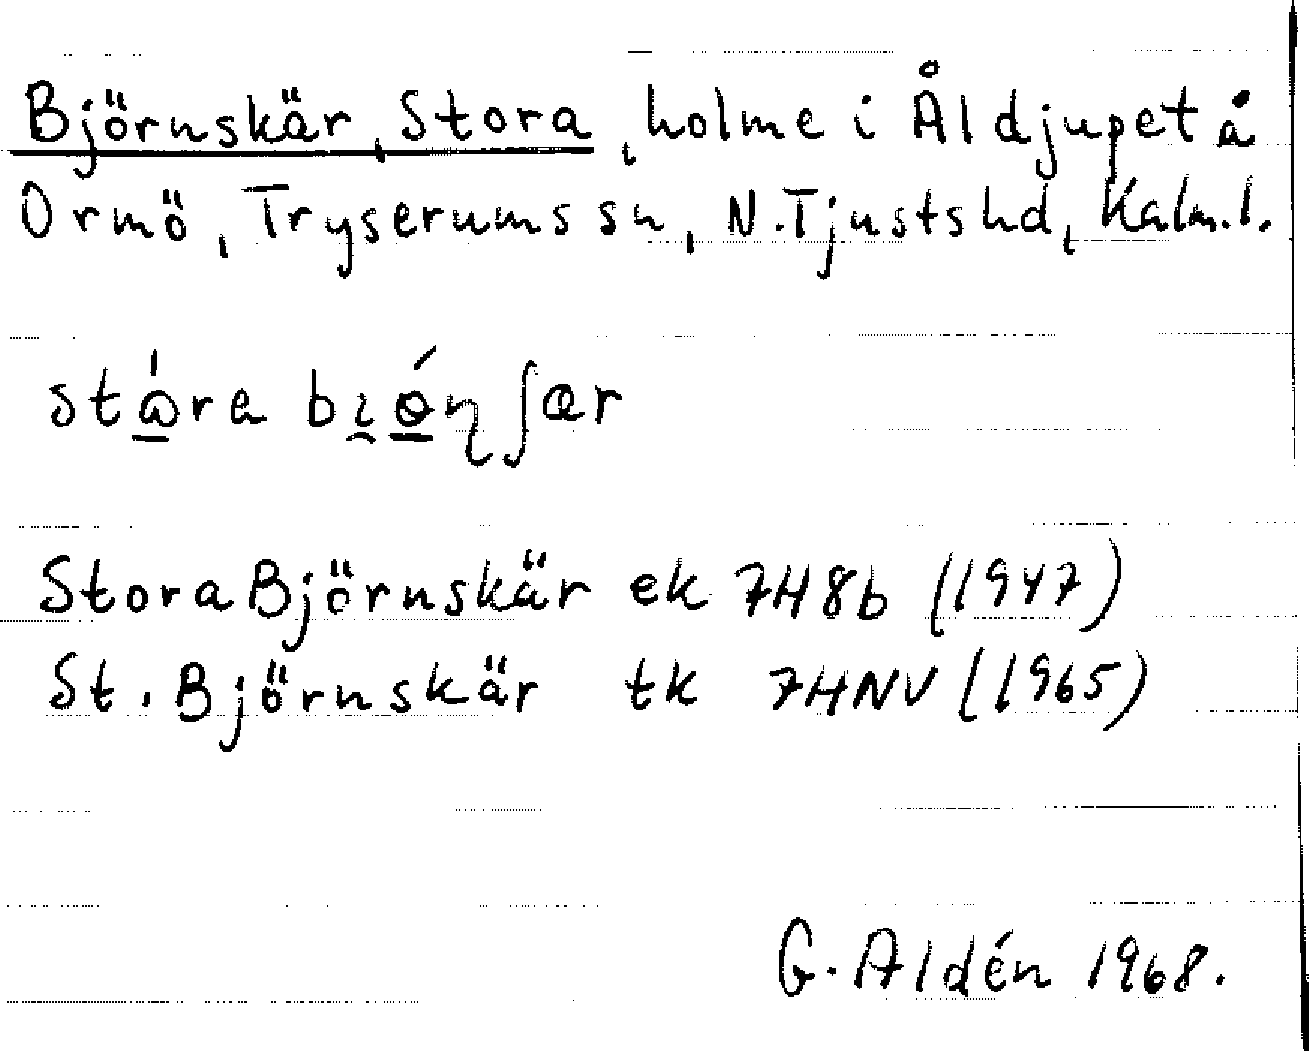 Björnskär, Stora, holme i Åldjupet å
Ormö, Tryserums sn, N. Tjusts hd, Kalm. l.
Stora Björnskär ek 7H8b (1947)
St. Björnskär tk 7HNV (1965)
G. Aldén 1968.